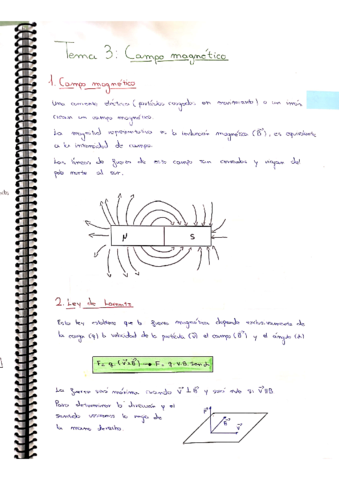 Tema 3: Campo magnético
1. Campo magnético
Una corriente eléctrica (partículas cargadas en movimiento) o un imán
crean un campo magnético.
La magnitud representativa es la inducción magnética (B⃗), es equivalente
a la intensidad de campo.
Las líneas de fuerza de este campo son cerradas y viajan del
polo norte al sur.
N S
2. Ley de Lorentz
Esta ley establece que la fuerza magnética depende exclusivamente de
la carga (q) la velocidad de la partícula (v⃗) el campo (B⃗) y el ángulo (α)
F= q·(v⃗×B⃗) → F= q·v·B·sen α
La fuerza será máxima cuando v⃗⊥B⃗ y será nula si v⃗∥B⃗.
Para determinar la dirección y el
sentido usaremos la regla de
la mano derecha.
F⃗
B⃗
v⃗